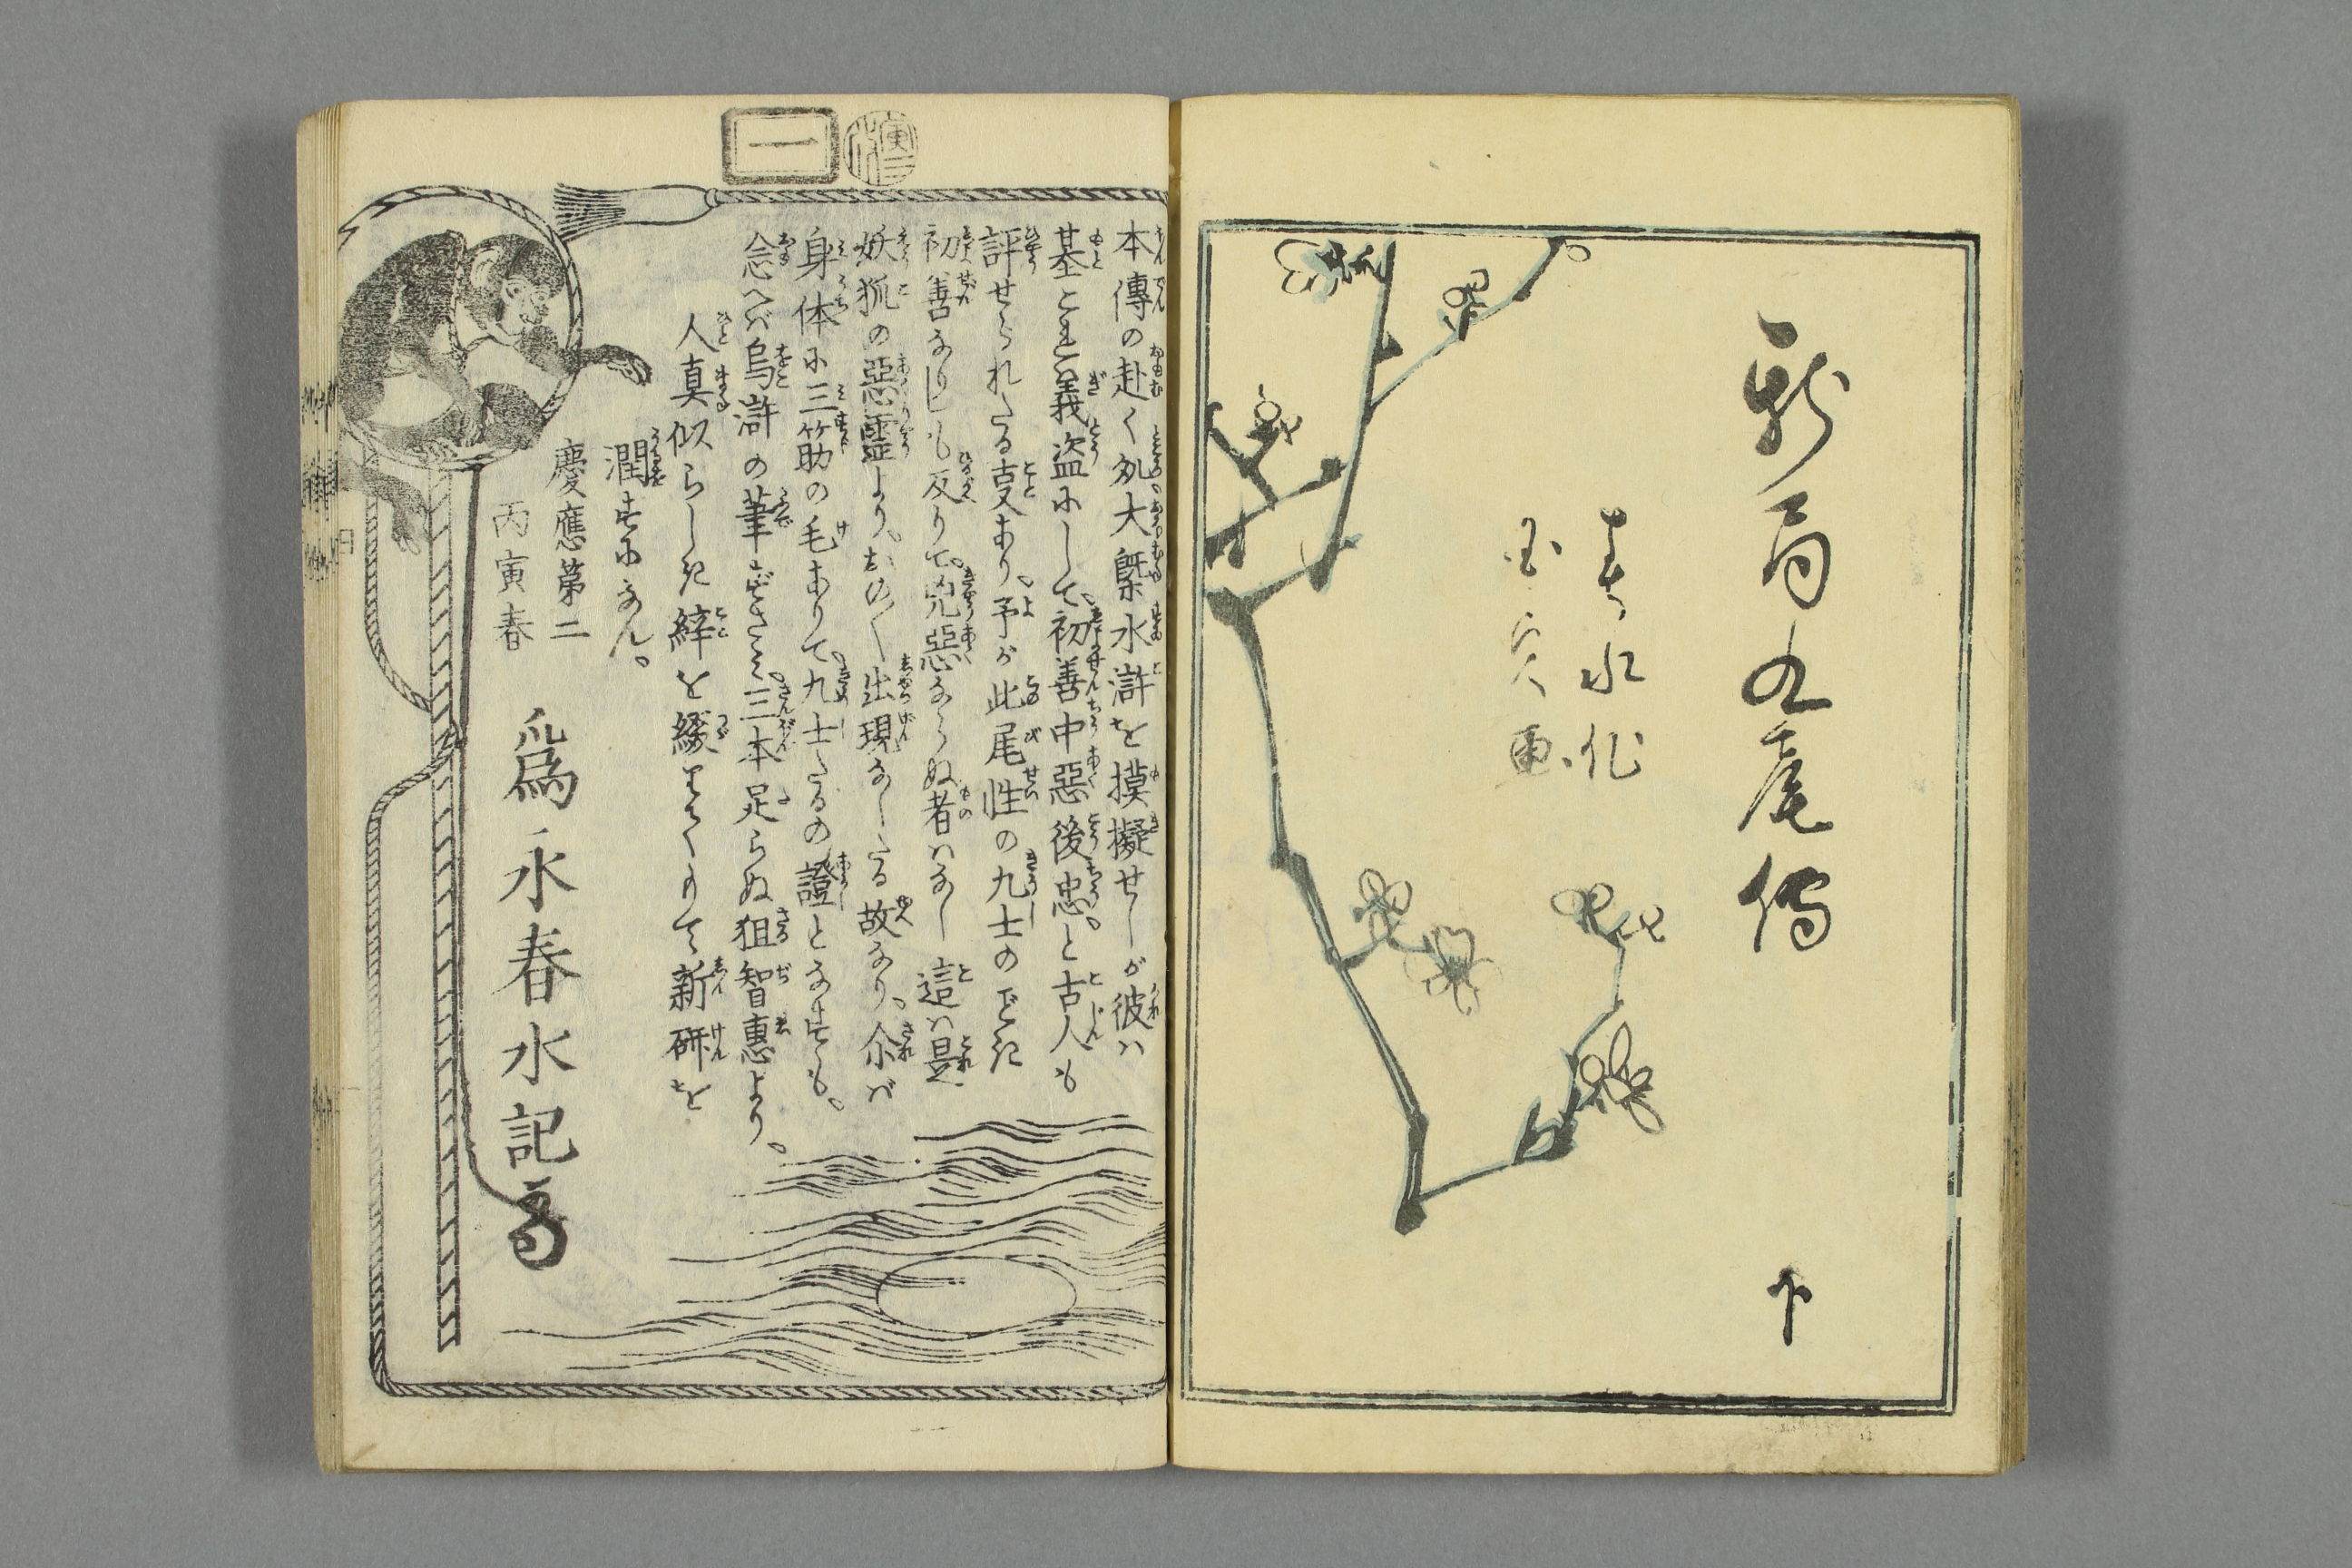 新局九尾傳
春水作
国
画
下
本傳の赴く処大槩水滸を摸擬せしが彼ハ
基これ義盗にして、初善中惡後忠。と古人も
評せられたる叓あり、予が此尾性の九士のごとき
初善なりしも反りて、兇惡ならぬ者ハなし這ハ是
妖狐の惡靈より、おの〳〵出現なしたる故なり、尒バ
身体に三筋の毛ありて、九士たるの證となせども、
念へバ烏滸の筆ずさミ、三本足らぬ狙智惠より、
人真似らしき縡を綴りて新研を
潤すになん。
慶應第二
丙寅春
爲永春水記
一